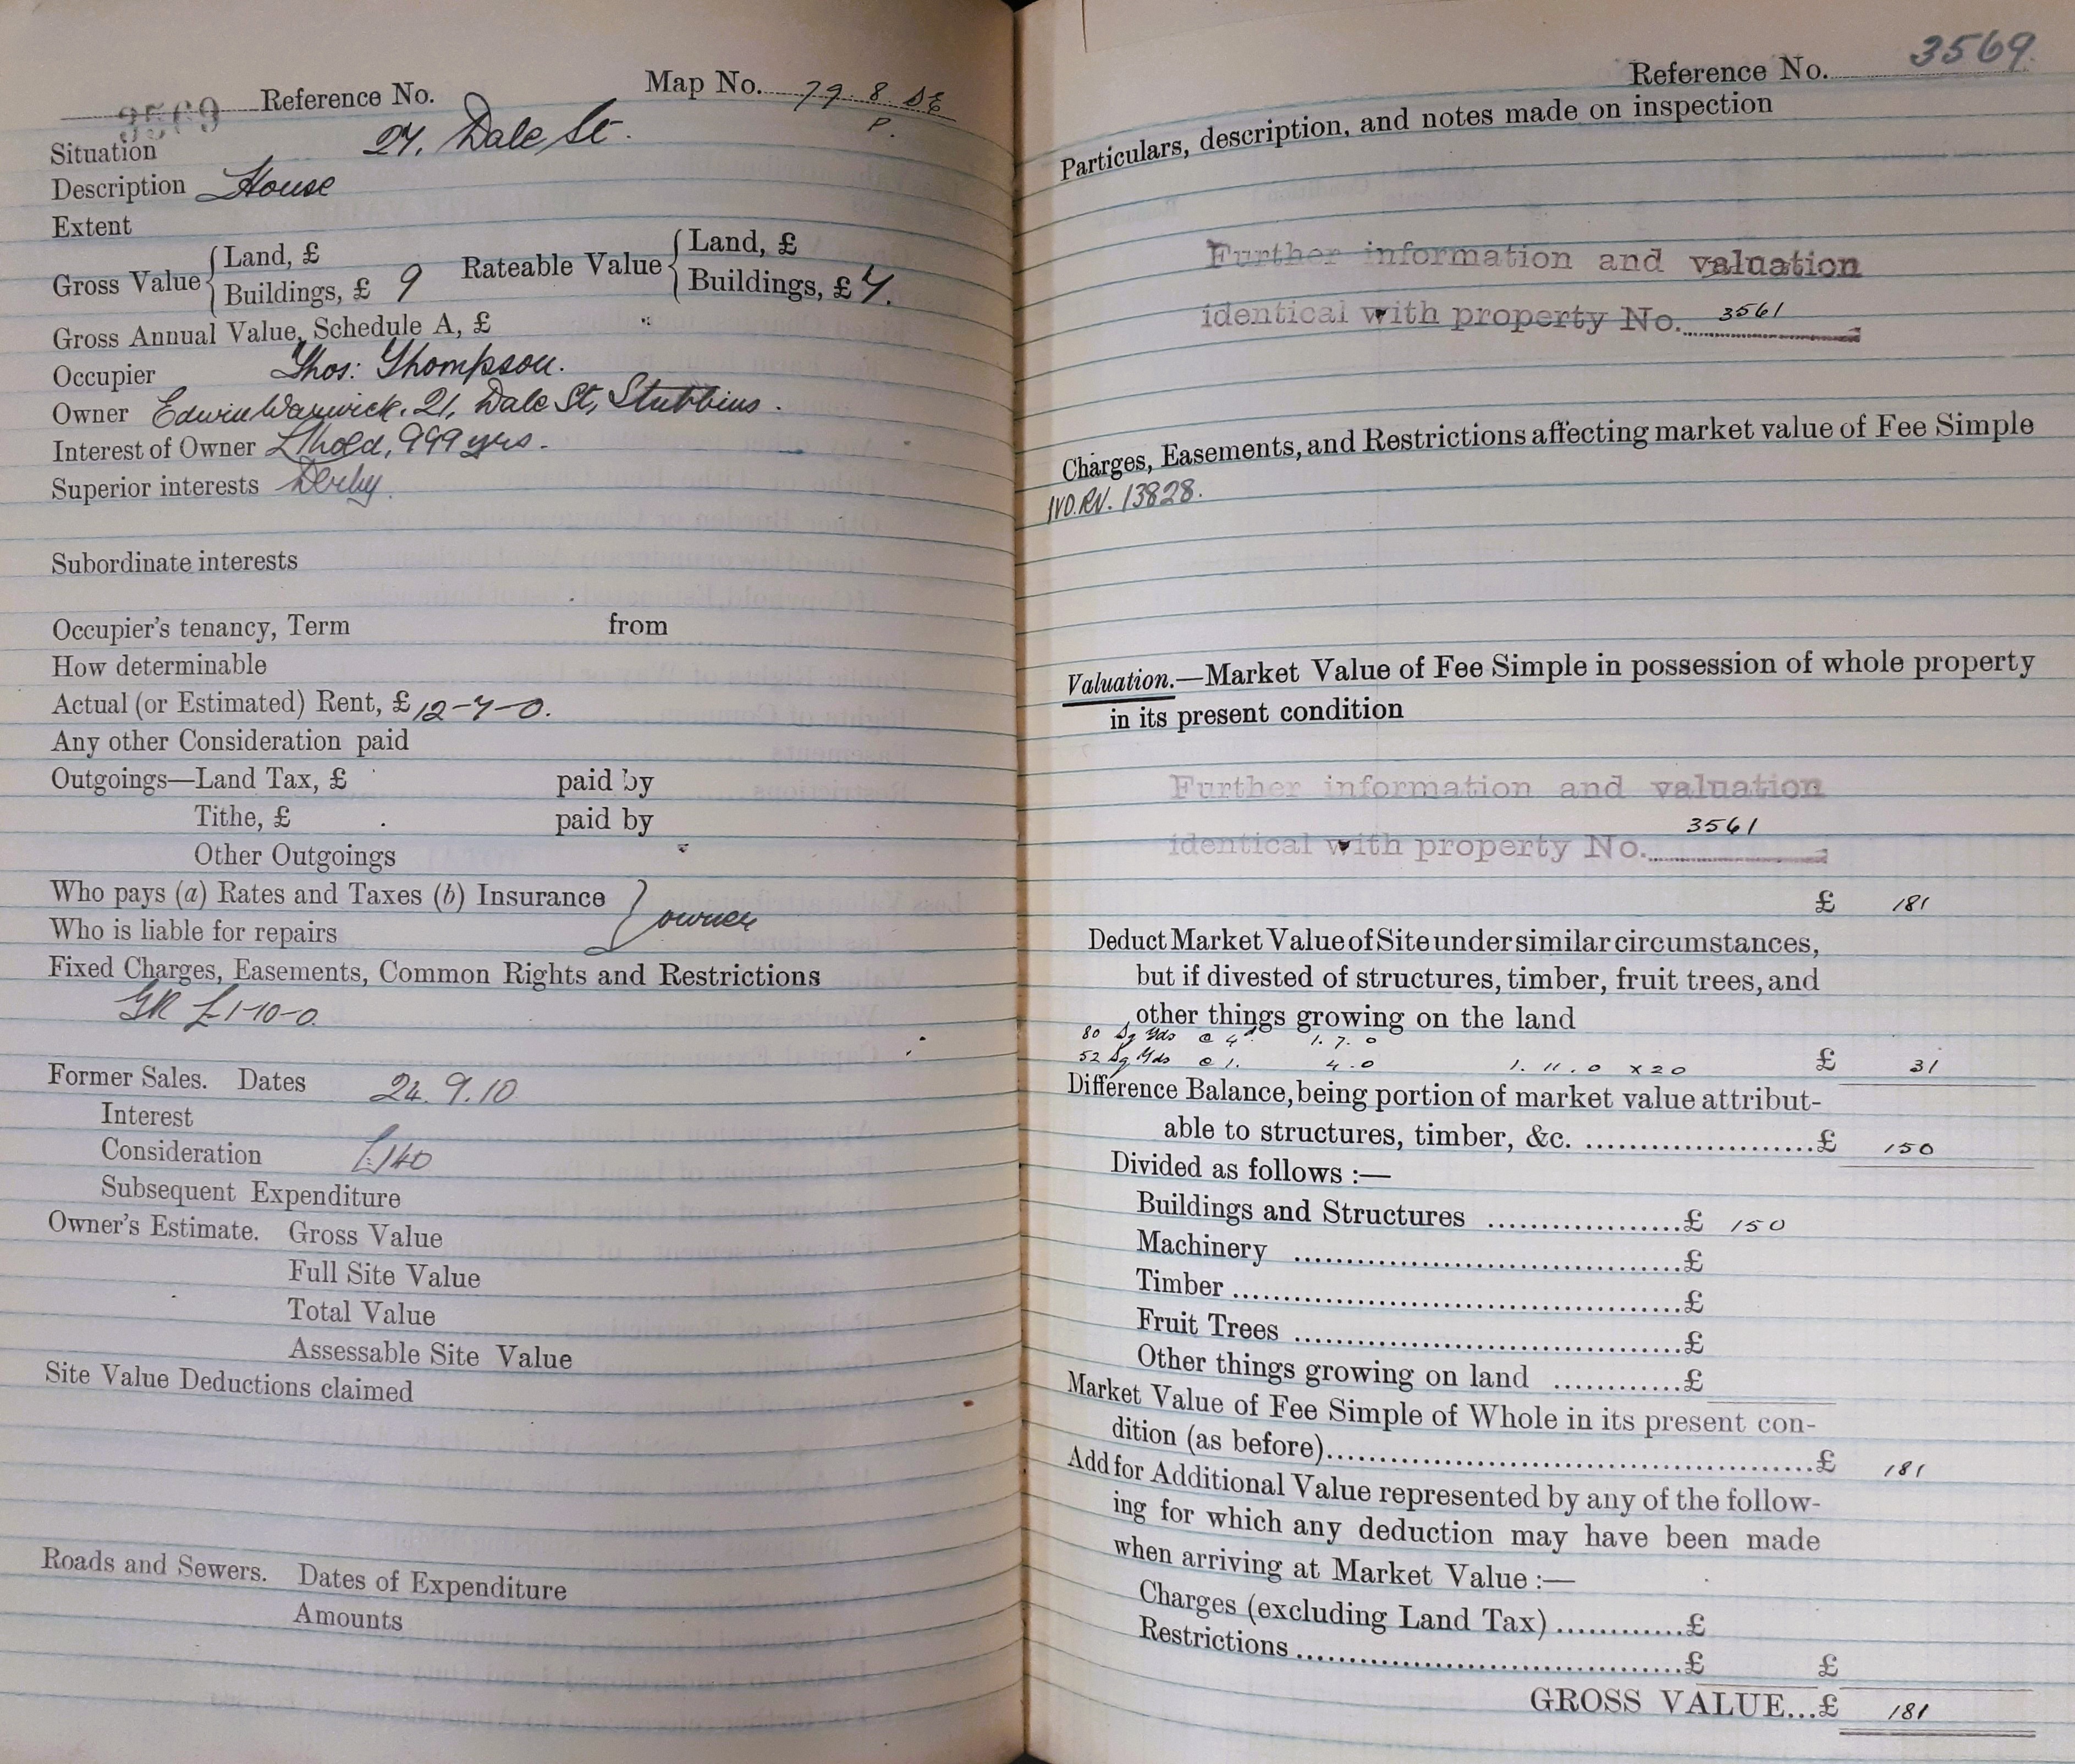 3569 Reference No. Map No. 79. 8. SE
P.
Situation 27, Dale St.
Description House
Extent
Gross Value { Land, £ Rateable Value { Land, £
Buildings, £ 9 Buildings, £ 7.
Gross Annual Value, Schedule A, £
Occupier Thos: Thompson.
Owner Edwin Warwick, 21, Dale St, Stubbins.
Interest of Owner L/hold, 999 yrs.
Superior interests Derby.
Subordinate interests
Occupier's tenancy, Term from
How determinable
Actual (or Estimated) Rent, £ 12-7-0.
Any other Consideration paid
Outgoings—Land Tax, £ paid by
Tithe, £ paid by
Other Outgoings
Who pays (a) Rates and Taxes (b) Insurance } owner
Who is liable for repairs
Fixed Charges, Easements, Common Rights and Restrictions
GR £1-10-0.
Former Sales. Dates 24.9.10
Interest
Consideration £140
Subsequent Expenditure
Owner's Estimate. Gross Value
Full Site Value
Total Value
Assessable Site Value
Site Value Deductions claimed
Roads and Sewers. Dates of Expenditure
Amounts
Reference No. 3569.
Particulars, description, and notes made on inspection
Further information and valuation
identical with property No. 3561
Charges, Easements, and Restrictions affecting market value of Fee Simple
IVD.RV. 13828.
Valuation.—Market Value of Fee Simple in possession of whole property
in its present condition
Further information and valuation
identical with property No. 3561
£ 181
Deduct Market Value of Site under similar circumstances,
but if divested of structures, timber, fruit trees, and
other things growing on the land
80 Sq Yds @ 4d 1. 7. 0
52 Sq Yds @ 1. 4. 0 1. 11. 0 x 20 £ 31
Difference Balance, being portion of market value attribut-
able to structures, timber, &c. ........ £ 150
Divided as follows :—
Buildings and Structures ........ £ 150
Machinery ........ £
Timber ........ £
Fruit Trees ........ £
Other things growing on land ........ £
Market Value of Fee Simple of Whole in its present con-
dition (as before) ........ £ 181
Add for Additional Value represented by any of the follow-
ing for which any deduction may have been made
when arriving at Market Value :—
Charges (excluding Land Tax) ........ £
Restrictions ........ £ £
GROSS VALUE...£ 181